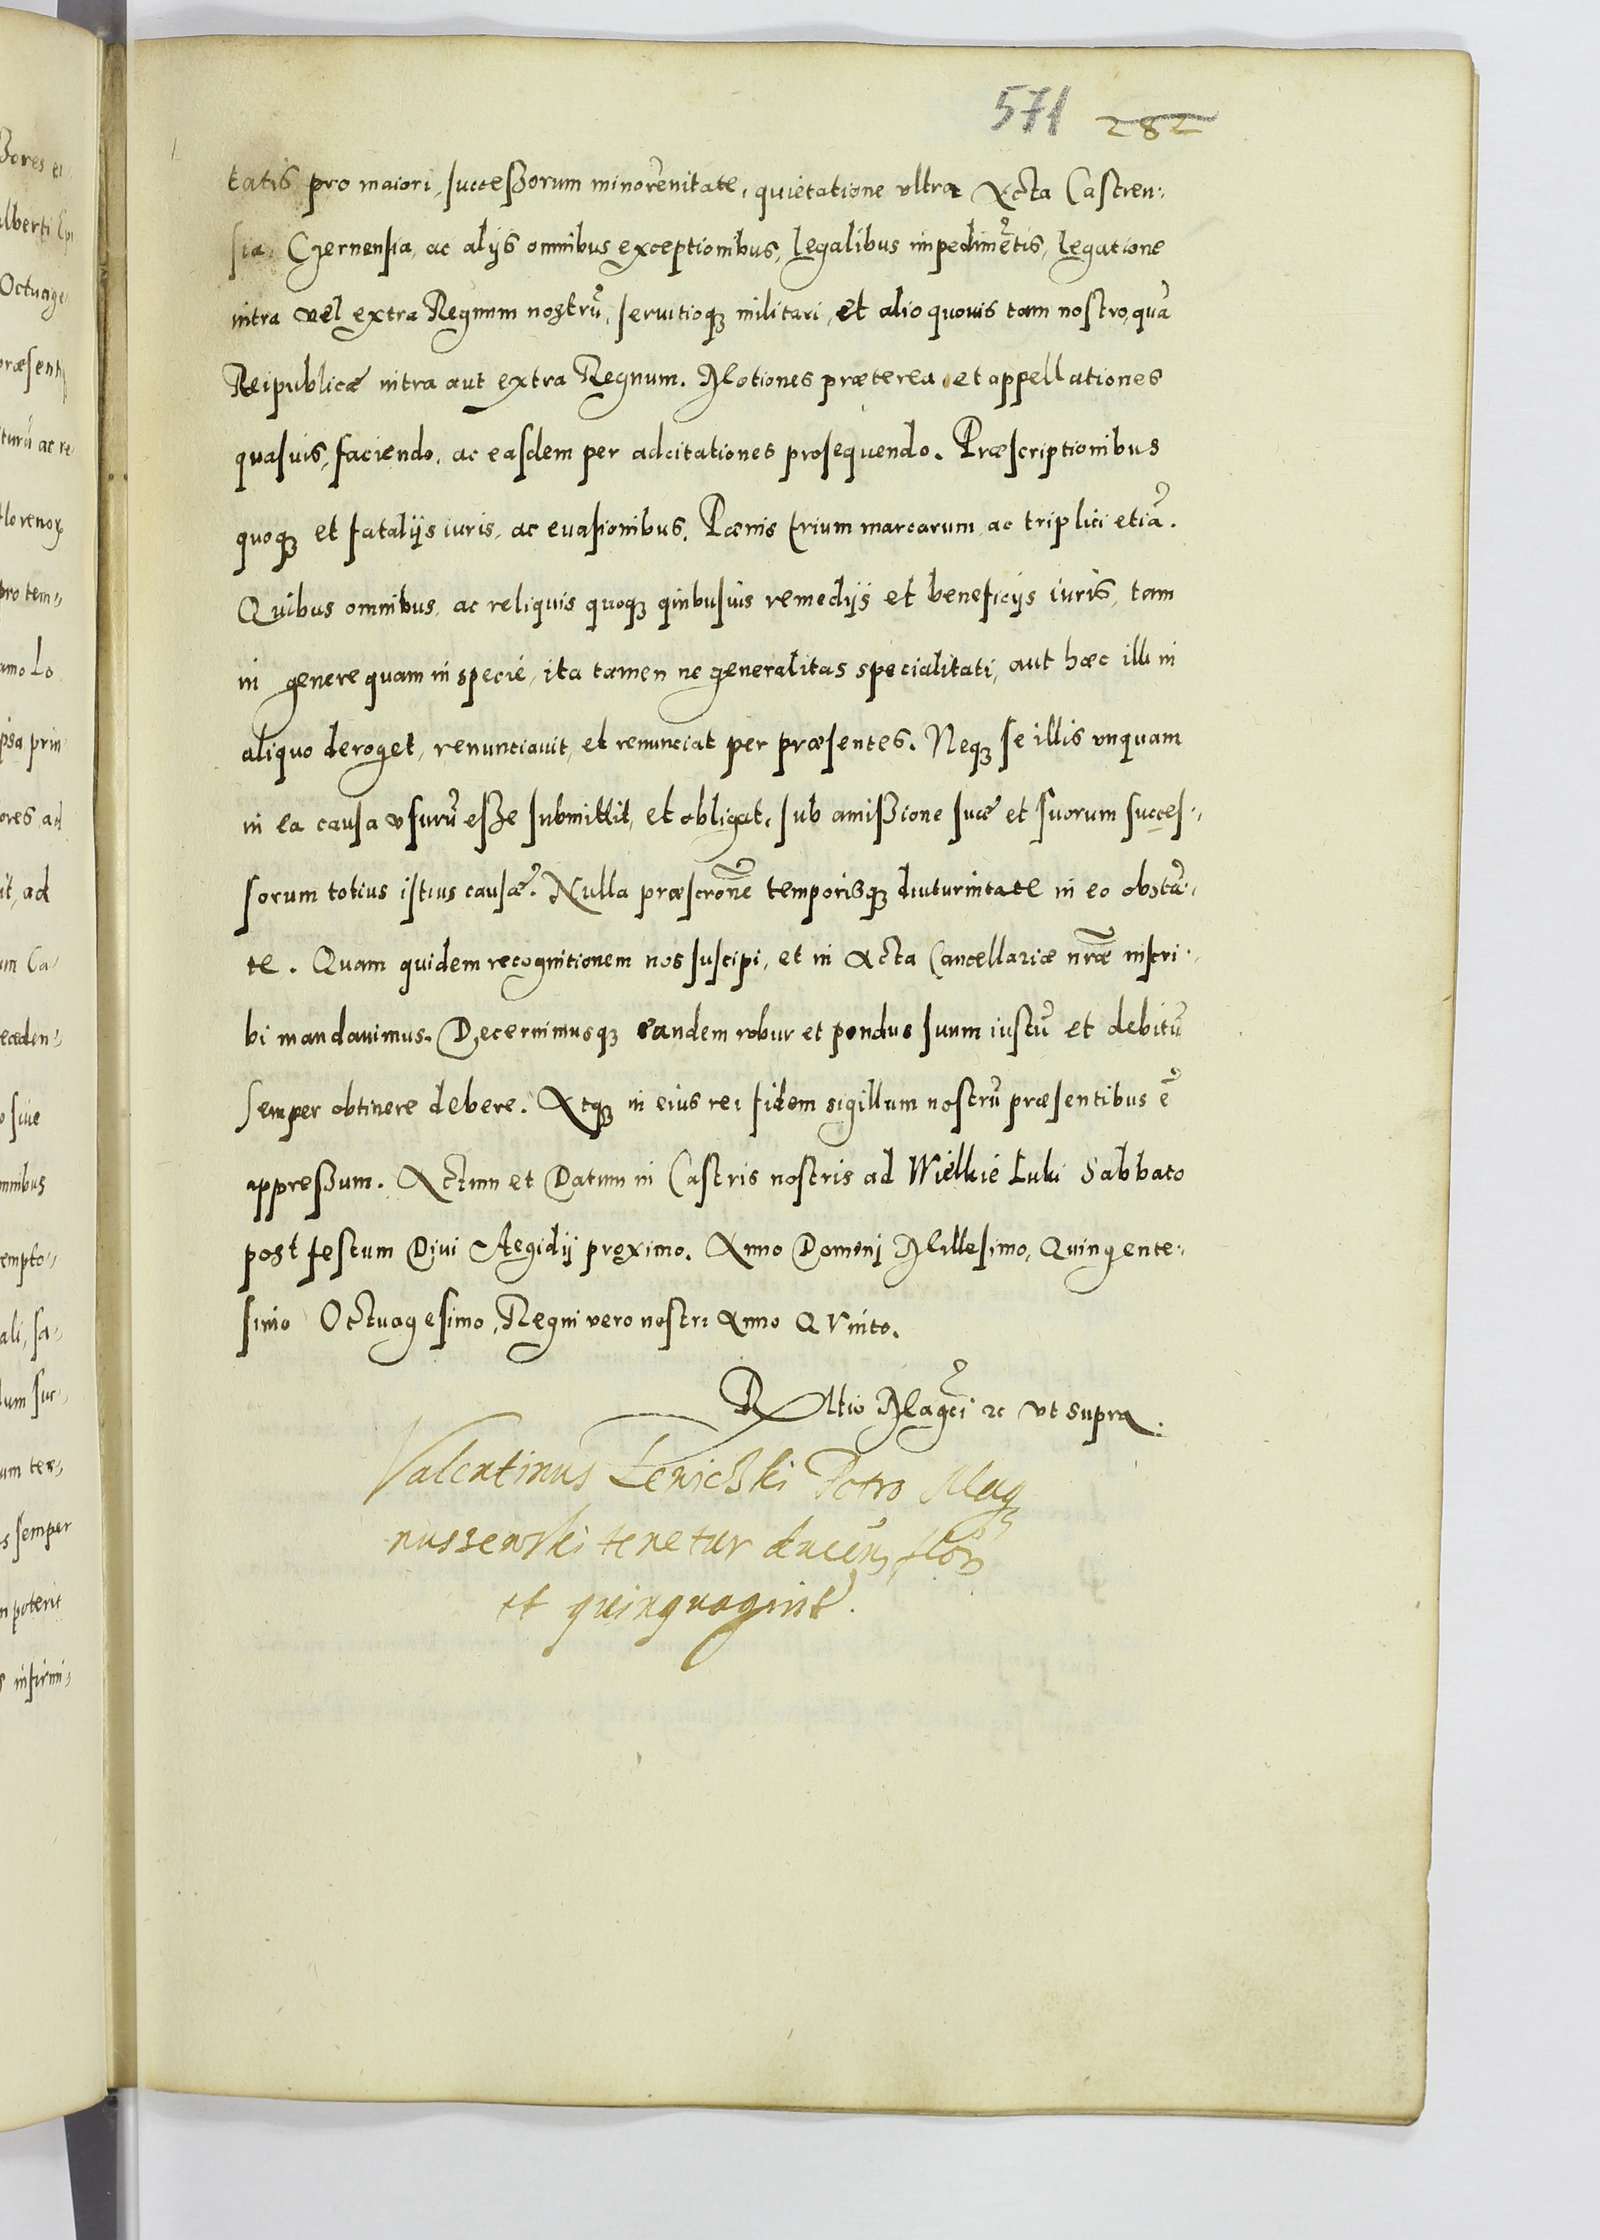 571 282
tatis pro maiori, successorum minorẽnitate, quietatione vltra Acta Castren:
sia Czernensia, ac alijs omnibus exceptionibus, legalibus impedimẽtis, legatione
intra vel extra Regnum nostrũ, seruitioq; militari, et alio quouis tam nostro, quã
Reipublicæ intra aut extra Regnum. Motiones præterea et appellationes
quasuis, faciendo, ac easdem per adcitationes prosequendo. Præscriptionibus
quoq; et fatalijs iuris, ac euasionibus. Pænis trium marcarum ac triplici etiã.
Quibus omnibus, ac reliquis quoq; quibusuis remedijs et beneficijs iuris, tam
in genere quam in specie, ita tamen ne generalitas specialitati, aut hæc illi in
aliquo deroget, renunciauit, et renunciat per præsentes. Neq; se illis vnquam
in ea causa vsurũ esse submittit, et obligat, sub amissione suæ et suorum succes:
sorum totius istius causæ. Nulla præscrõne temporisq; diuturnitate in eo obstã:
te. Quam quidem recognitionem nos suscipi, et in Acta Cancellariæ nr̃æ inscri:
bi mandauimus. Decernimusq; eandem robur et pondus suum iustũ et debitũ
semper obtinere debere. Atq; in eius rei fidem sigillum nostrũ præsentibus ẽ
appressum. Actum et Datum in Castris nostris ad Wielkie Luki Sabbato
post festum Diui Aegidij proximo. Anno Domini Millesimo, Quingente:
simo Octuagesimo, Regni vero nostri Anno Quinto.
Rltio Magci ꝛc vt supra.
Valentinus Petro Mag
nussewski tenetur ducen, flor
et quinquagint